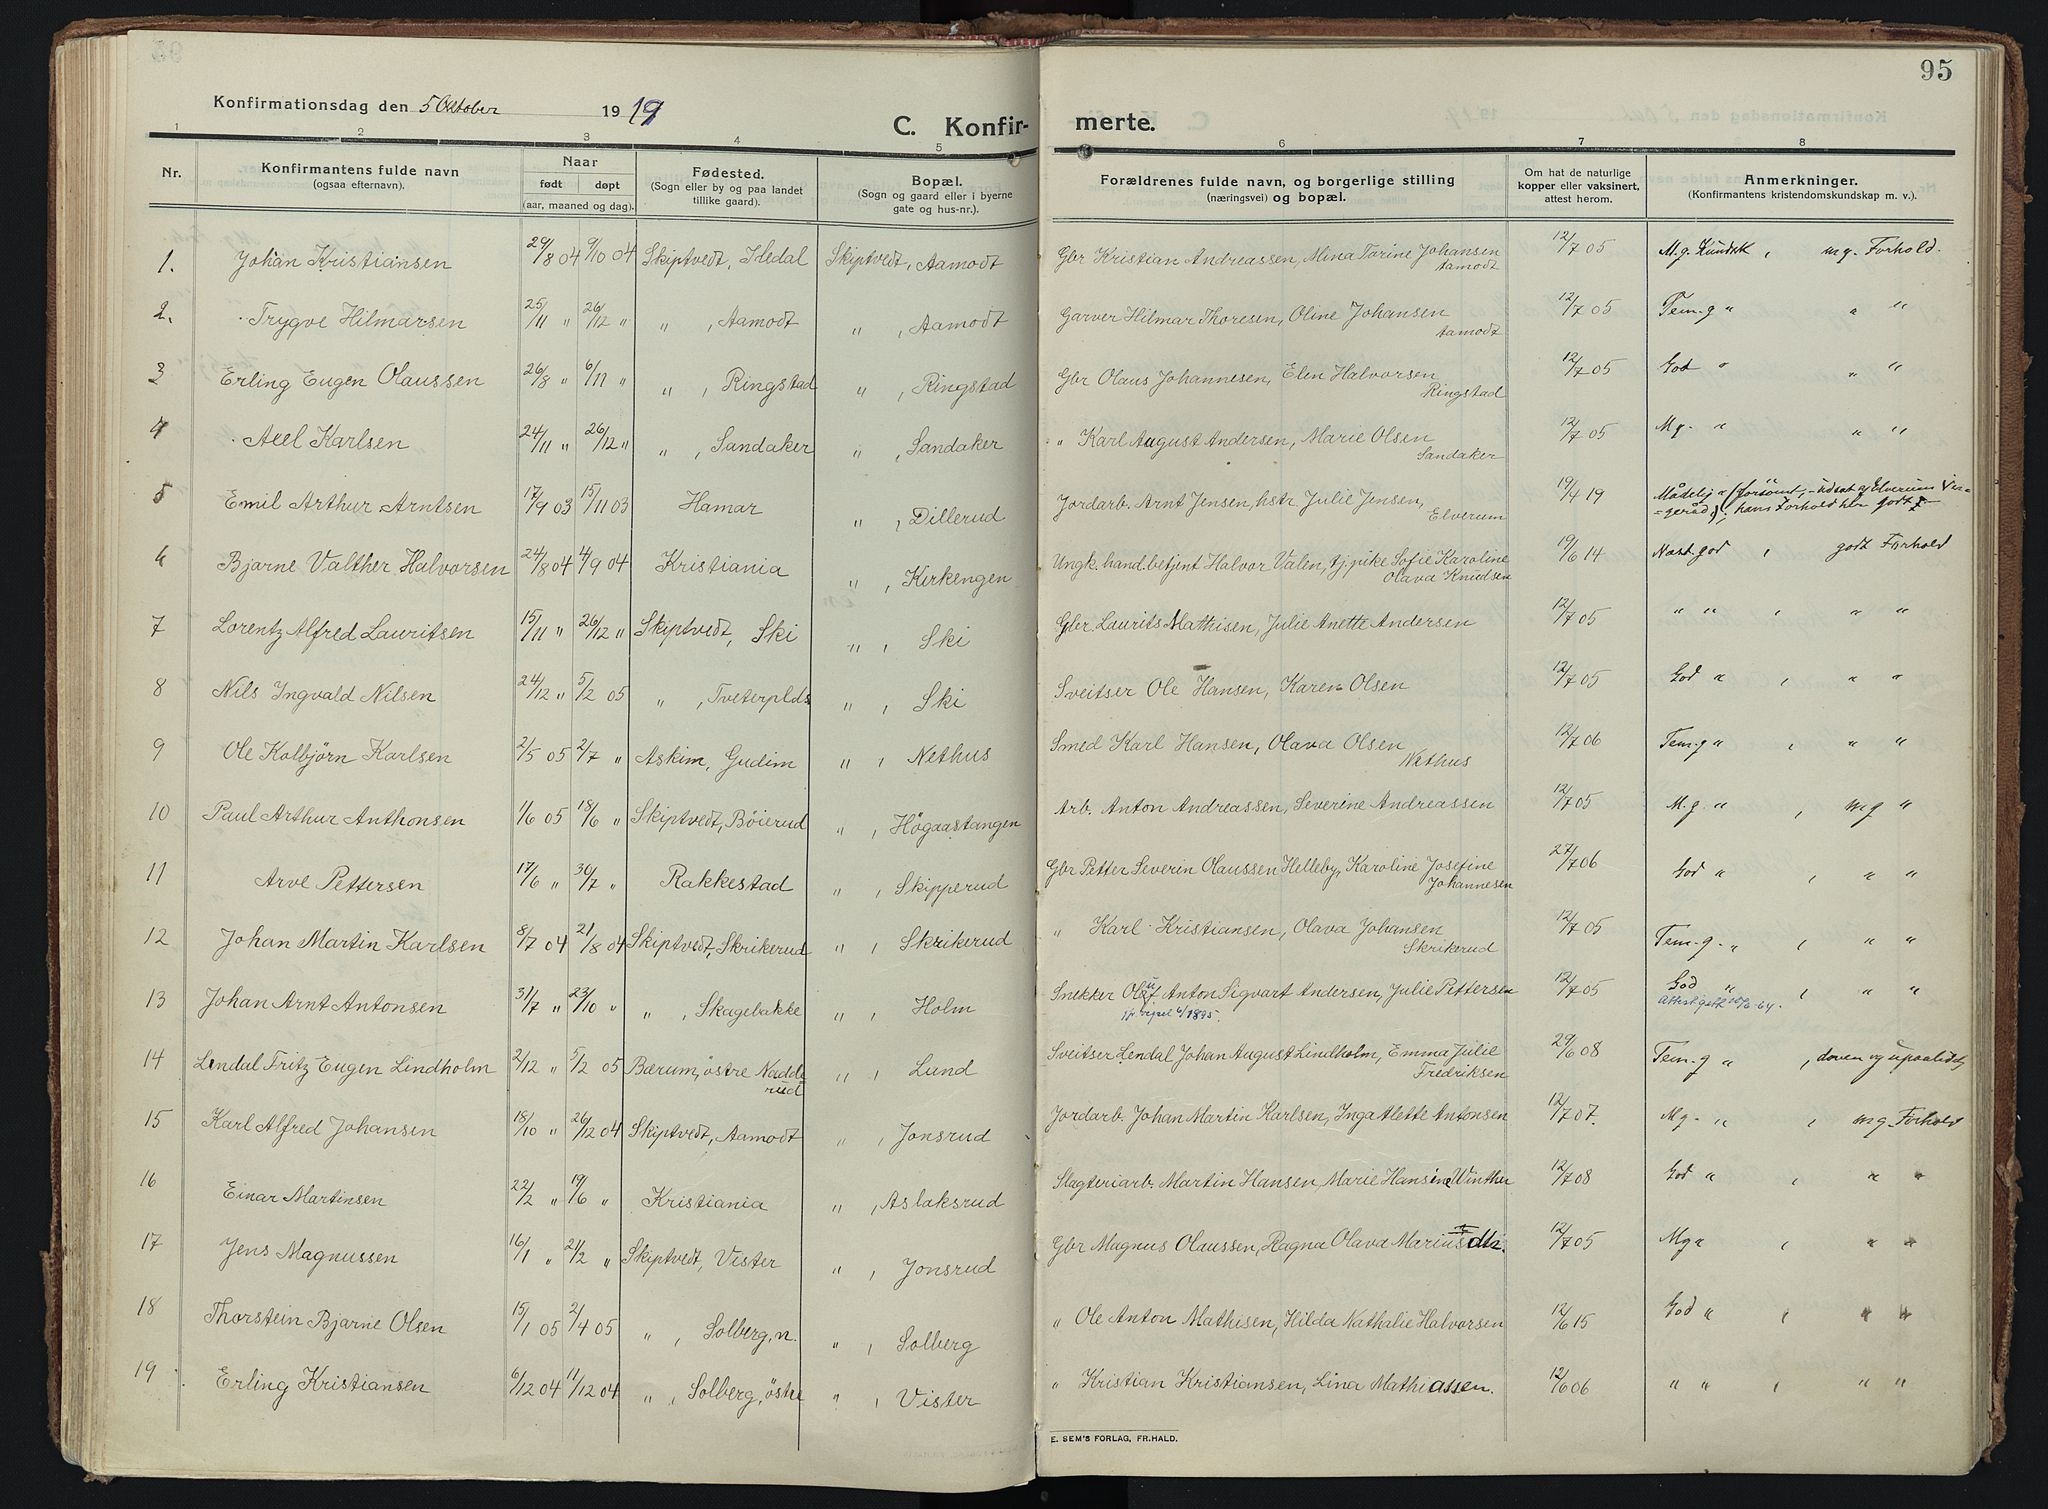 95
Konfirmationsdag den 5 Oktober 1919
C. Konfirmerte.
1 2 3 4 5 6 7 8
Nr.
Konfirmantens fulde navn
(ogsaa efternavn).
Naar
født døpt
(aar, maaned og dag).
Fødested.
(Sogn eller by og paa landet
tillike gaard).
Bopæl.
(Sogn og gaard eller i byerne
gate og hus-nr.).
Forældrenes fulde navn, og borgerlige stilling
(næringsvei) og bopæl.
Om hat de naturlige
kopper eller vaksinert,
attest herom.
Anmerkninger.
(Konfirmantens kristendomskundskap m. v.).
1. Johan Kristiansen 29/8 04 9/10 04 Skiptvedt, Skiptvedt, Aamodt Gbr Kristian Andreassen, Mina Torine Johansen Aamodt 12/7 05 M.g. Kundsk , mg. Forhold.
2. Trygve Hilmarsen 25/11 " 26/12 " " , Aamodt " , Aamodt Garver Hilmar Thoresen, Oline Johansen Aamodt 12/7 05 Tem. g " " "
3 Erling Eugen Olaussen 26/8 " 6/11 " " , Ringstad " , Ringstad Gbr Olaus Johannesen, Elen Halvorsen Ringstad 12/7 05 God " " "
4 Axel Karlsen 24/11 " 26/12 " " , Sandaker " , Sandaker " Karl August Andersen, Marie Olsen Sandaker 12/7 05 Mg. " " "
5 Emil Arthur Arntsen 17/9 03 15/11 03 Hamar " , Dillerud Jordarb. Arnt Jensen, hstr Julie Jensen, Elverum 19/4 19 Mådelig " (forsömt, - udsat af Elverum Vergeråd), hans Forhold her godt
6 Bjarne Valther Halvorsen 24/8 04 4/9 04 Kristiania " , Kirkengen Ungk. hand. betjent Halvor Valen, tj. pike Sofie Karoline Olava Knudsen 19/6 14 Næst. god , godt Forhold
7 Lorentz Alfred Lauritsen 15/11 " 26/12 " Skiptvedt, Ski " , Ski Gbr Laurits Mathisen, Julie Anette Andersen 12/7 05 " " , " "
8 Nils Ingvald Nilsen 24/12 " 5/2 05 " , Tveterplds " , Ski Sveitser Ole Hansen, Karen Olsen 12/7 05 God " , " "
9 Ole Kolbjörn Karlsen 2/5 05 2/7 " Askim, Gudim " , Nethus Smed Karl Hansen, Olava Olsen Nethus 12/7 06 Tem. g " , " "
10 Paul Arthur Anthonsen 1/6 05 18/6 " Skiptvedt, Böierud " , Högaastangen Arb. Anton Andreassen, Severine Andreassen 12/7 05 M.g. " , mg "
11 Arve Pettersen 17/6 " 30/7 " Rakkestad " , Skipperud Gbr Petter Severin Olaussen Helleby, Karoline Josefine Johannesen 27/7 06 God " , " "
12 Johan Martin Karlsen 8/7 04 21/8 04 Skiptvedt, Skrikerud " , Skrikerud " Karl Kristiansen, Olava Johansen Skrikerud 12/7 05 Tem. g. " , " "
13 Johan Arnt Antonsen 31/7 " 23/10 " " , Skagebakke " , Holm Snekker Oluf Anton Sigvart Andersen, Julie Pettersen 12/7 05 God " , " "
14 Lendal Fritz Eugen Lindholm 2/12 " 5/2 05 Bærum, östre Nadderud " , Lund Sveitser Lendal Johan August Lindholm, Emma Julie Fredriksen 29/6 08 Tem. g " , doven og upaalidel.
15 Karl Alfred Johansen 18/10 " 26/12 04 Skiptvedt, Aamodt " , Jonsrud Jordarb. Johan Martin Karlsen, Inga Alette Antonsen 12/7 07. Mg. " , mg. Forhold
16 Einar Martinsen 22/2 " 19/6 " Kristiania " , Aslaksrud Slagteriarb. Martin Hansen, Marie Hansine Winther 12/7 08 God " , " "
17 Jens Magnussen 16/1 " 21/2 " Skiptvedt, Vister " , Jonsrud Gbr Magnus Olaussen, Ragna Olava Mariusdtr. 12/7 05 Mg " , " "
18 Thorstein Bjarne Olsen 15/1 05 2/4 05 " , Solberg, n. " , Solberg " Ole Anton Mathisen, Hilda Nathalie Halvorsen 12/6 15 God " , " "
19 Erling Kristiansen 6/12 04 11/12 04 " , Solberg, östre " , Vister " Kristian Kristiansen, Lina Mathiassen. 12/6 06 " " , " "
E. SEM'S FORLAG, FR.HALD.